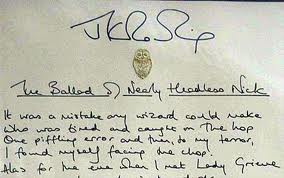 JK Rowling
The Ballad of Nearly Headless Nick
It was a mistake any wizard could make
Who was tired and caught on the hop
One piffling error and then, to my terror,
I found myself facing the chop.
Alas for the eve when I met Lady Grieve